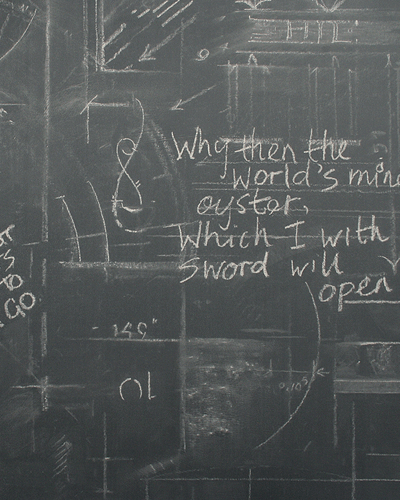 Why then the
world's mine
oyster,
Which I with
sword will
open
GO
0.10